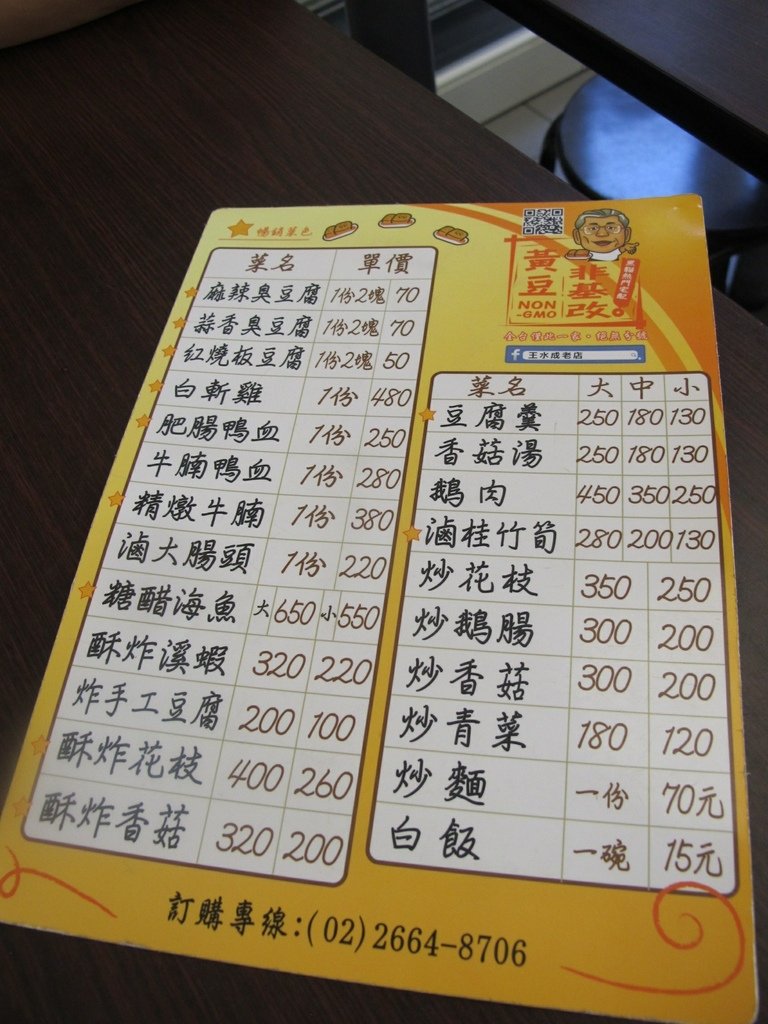 暢銷菜色
菜名 單價
麻辣臭豆腐 1份2塊 70
蒜香臭豆腐 1份2塊 70
紅燒板豆腐 1份2塊 50
白斬雞 1份 480
肥腸鴨血 1份 250
牛腩鴨血 1份 280
精燉牛腩 1份 380
滷大腸頭 1份 220
糖醋海魚 大650 小550
酥炸溪蝦 320 220
炸手工豆腐 200 100
酥炸花枝 400 260
酥炸香菇 320 200
非基改
黃豆
NON
-GMO
黑貓熱門宅配
全台僅此一家‧絕無分號
f 王水成老店
菜名 大 中 小
豆腐羹 250 180 130
香菇湯 250 180 130
鵝肉 450 350 250
滷桂竹筍 280 200 130
炒花枝 350 250
炒鵝腸 300 200
炒香菇 300 200
炒青菜 180 120
炒麵 一份 70元
白飯 一碗 15元
訂購專線:(02)2664-8706